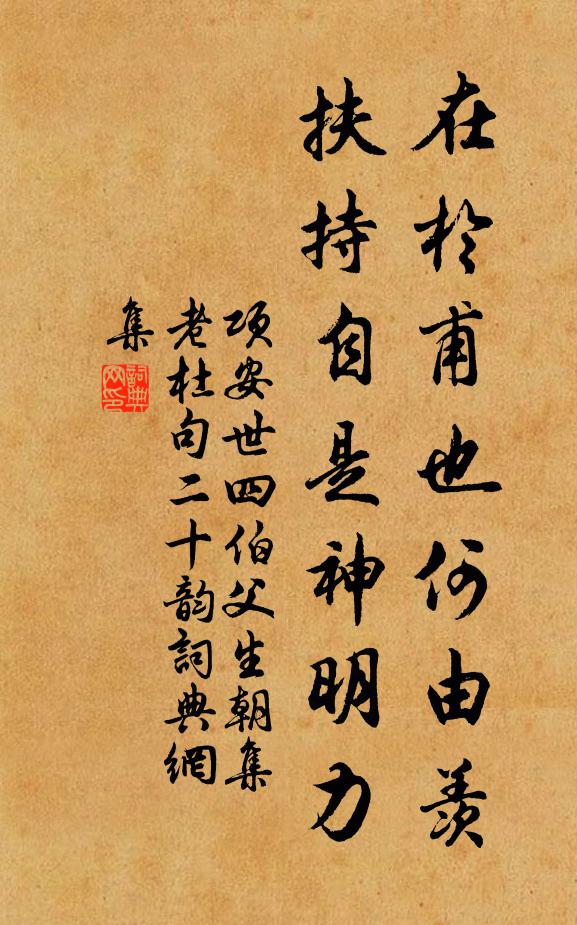 在於甫也何由羨
扶持自是神明力
項安世四伯父生朝集
老杜句二十韵詞典網
集
詞典
网印